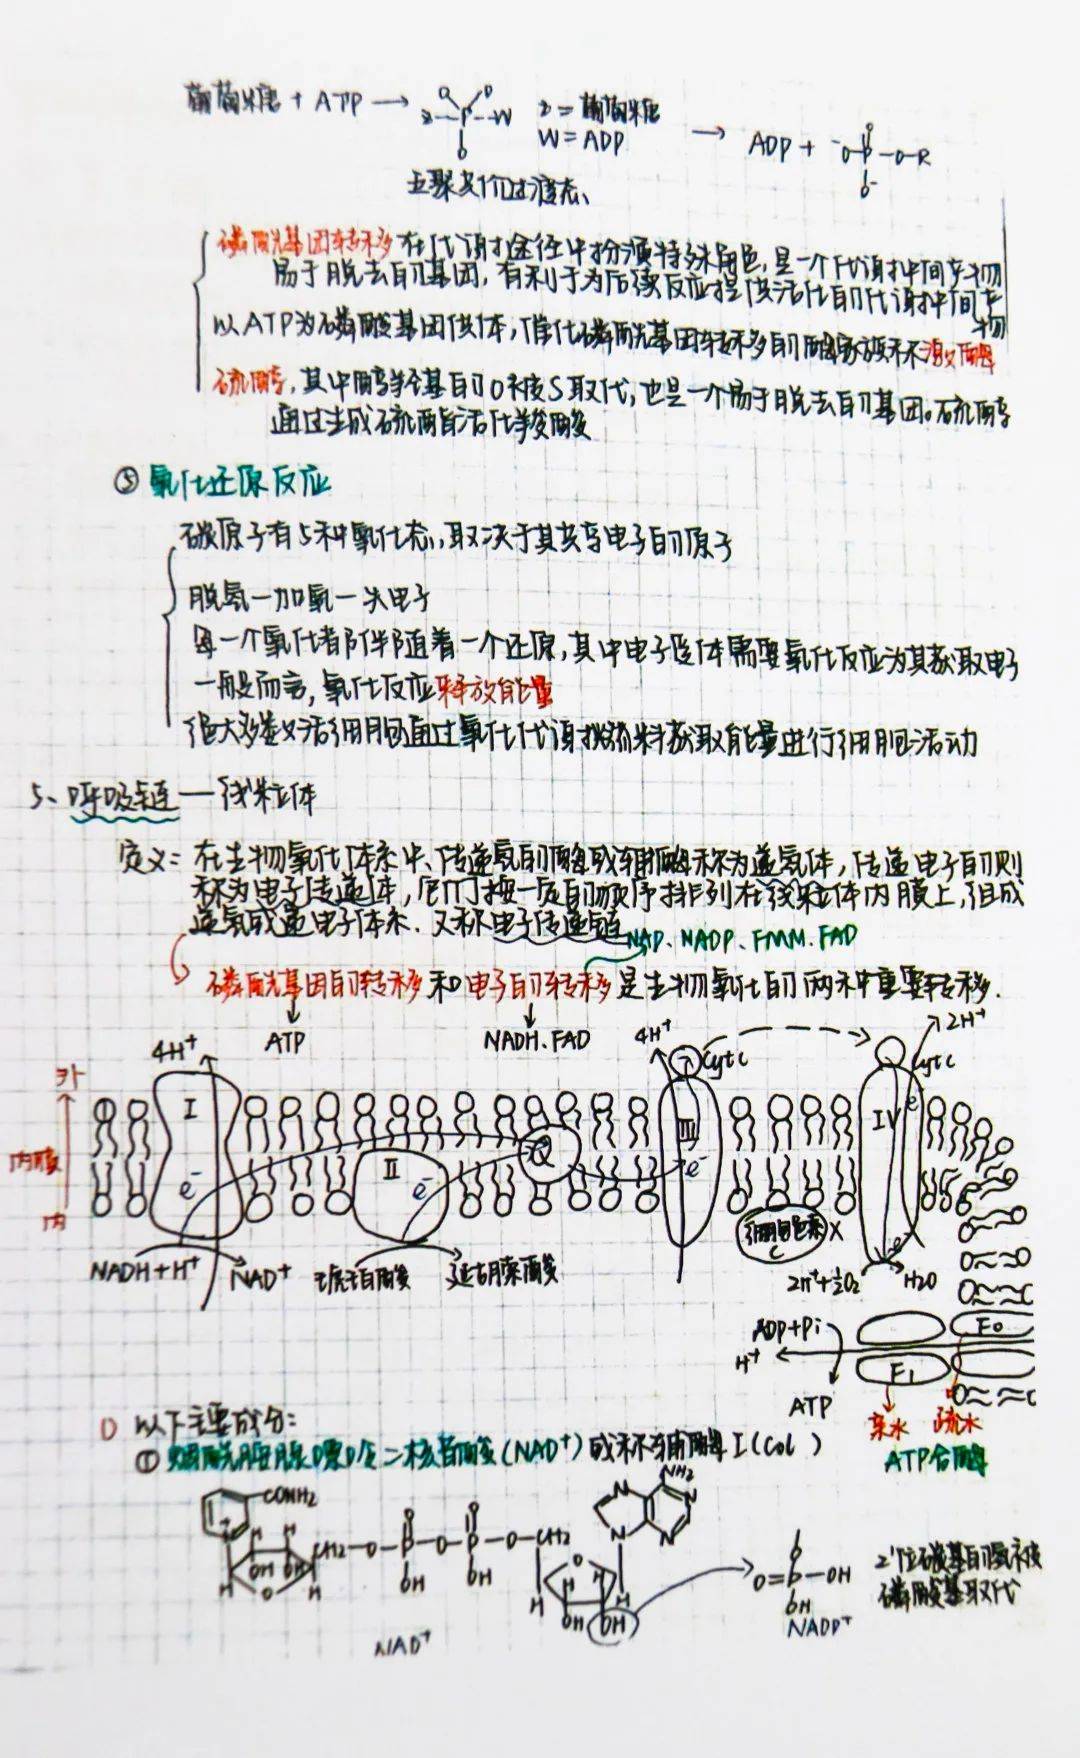 葡萄糖 + ATP → Z = 葡萄糖
W = ADP
→ ADP + -O-P-O-R
五聚共价过渡态
磷酰基团转移在代谢途径中扮演特殊角色,是一个代谢中间产物
易于脱去的基团,有利于为后续反应提供活化的代谢中间产
物
以ATP为磷酸基团供体,催化磷酰基团转移的酶家族称为激酶
硫酯,其中酯羟基的O被S取代,也是一个易于脱去的基团。硫酯
通过生成硫酯活化羧酸
⑤ 氧化还原反应
碳原子有5种氧化态,取决于其共享电子的原子
脱氢—加氧—失电子
每一个氧化都伴随着一个还原,其中电子受体需要氧化反应为其获取电子
一般而言,氧化反应释放能量
绝大多数活细胞通过氧化代谢燃料获取能量进行细胞活动
5、呼吸链—线粒体
定义: 在生物氧化体系中、传递氢的酶或辅酶称为递氢体,传递电子的则
称为电子传递体,它们按一定的顺序排列在线粒体内膜上,组成
递氢或递电子体系.又称电子传递链
NAD、NADP、FMN、FAD
磷酰基团的转移和电子的转移是生物氧化的两种重要转移.
ATP
NADH、FAD
4H⁺
4H⁺
Cyt c
2H⁺
Cyt c
外
内膜
内
I
II
Q
III
IV
e⁻
e⁻
e⁻
e
e
细胞色素
C
X
NADH + H⁺
NAD⁺
琥珀酸
延胡索酸
2H⁺+½O₂
H₂O
ADP+Pi
H⁺
ATP
F₀
F₁
亲水
疏水
ATP合酶
以下主要成分:
① 烟酰胺腺嘌呤二核苷酸(NAD⁺)或称辅酶 I (Co I )
CONH₂
NH₂
CH₂-O-P-O-P-O-CH₂
OH OH
OH OH
OH OH
NAD⁺
O=P-OH
OH
NADP⁺
2'位碳基的氢被
磷酸基取代